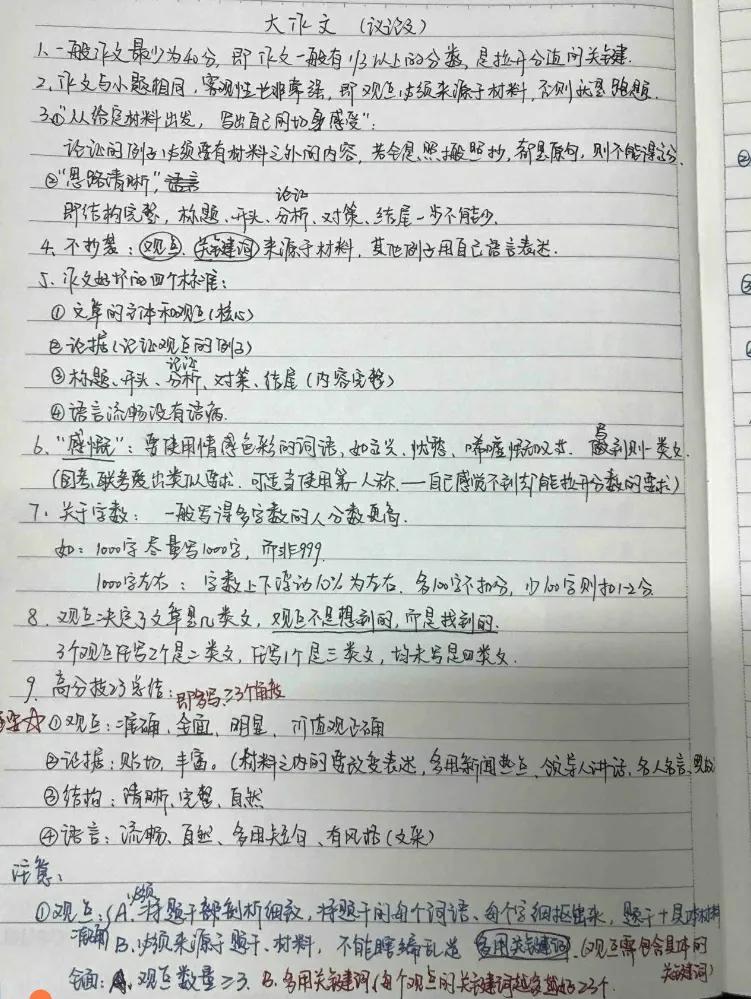 大作文 (议论文)
1、一般作文最少为40分,即作文一般有1/3以上的分数,是拉开分值的关键.
2、作文与小题相同,客观性也非常强,即观点必须来源于材料,否则就是跑题.
3、①"从给定材料出发,写出自己的切身感受":
论证的例子必须要有材料之外的内容,若全是照搬照抄,都是原句,则不能得高分.
②"思路清晰",语言
即结构完整,标题、开头、论证分析、对策、结尾一步不能少.
4、不抄袭:观点、关键词来源于材料,其他例子用自己语言表述.
5、作文好坏的四个标准:
①文章的立体和观点(核心)
②论据(论证观点的例子)
③标题、开头、论证分析、对策、结尾(内容完整)
④语言流畅没有语病.
6、"感慨":要使用情感色彩的词语,如 忧愁、唏嘘慨叹 写到则一类文.
(国考、联考爱出类似要求.可适当使用第一人称.——自己感觉不到却能拉开分数的要求)
7、关于字数: 一般写得多字数的人分数更高.
如:1000字尽量写1000字,而非999.
1000字左右:字数上下浮动10%为左右.多100字不扣分,少100字则扣1-2分.
8、观点决定了文章是几类文,观点不是想到的,而是找到的.
3个观点只写2个是二类文,只写1个是三类文,均未写是四类文.
9、高分技巧总结:即多写≥3个角度
☆①观点:准确、全面、明显、价值观正确
②论据:贴切、丰富。(材料之内的要改变表述,多用新闻热点、领导人讲话、名人名言、
③结构:清晰、完整、自然
④语言:流畅、自然、多用短句、有风格(文采)
注意:
①观点:(A、必须将题干部剖析细致,将题干的每个词语、每个字细抠出来,题干+具体材料
准确 B、必须来源于题干、材料,不能瞎编乱造 多用关键词.(观点需包含具体的关键词)
全面:A、观点数量≥3. B、多用关键词(每个观点的关键词越多越好≥3个.